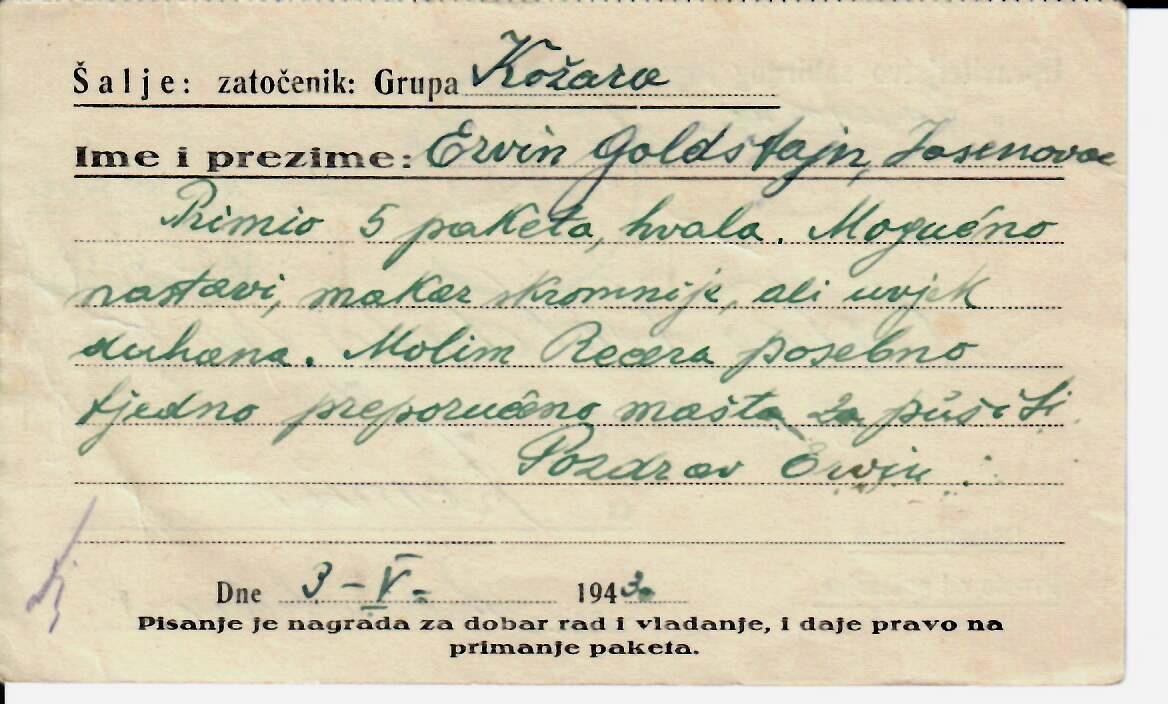 Šalje: zatočenik: Grupa Kožara
Ime i prezime: Ervin Goldštajn, Jasenovac
Primio 5 paketa, hvala. Mogućno
nastavi, makar skromnije, ali uvjek
duhana. Molim posebno
tjedno preporučeno mašta za pušiti.
Pozdrav Ervin
Dne 3-V- 1943.
Pisanje je nagrada za dobar rad i vladanje, i daje pravo na
primanje paketa.